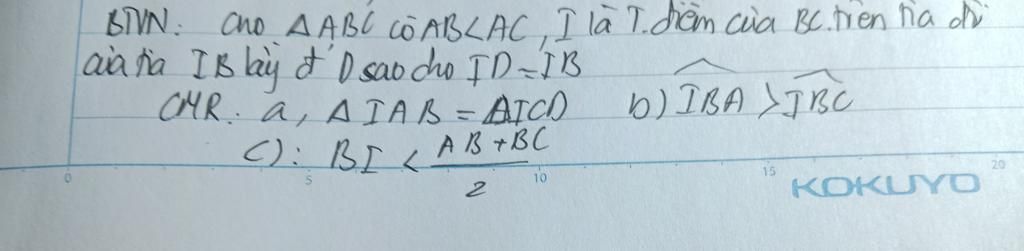 BTVN: cho △ABC có AB<AC, I là T.điểm của BC. trên tia đối
của tia IB lấy đ' D sao cho ID=IB
CMR: a, △IAB = △ICD b) \widehat{IBA} > \widehat{IBC}
c): BI < \frac{AB+BC}{2}
0 5 10 15 20
KOKUYO